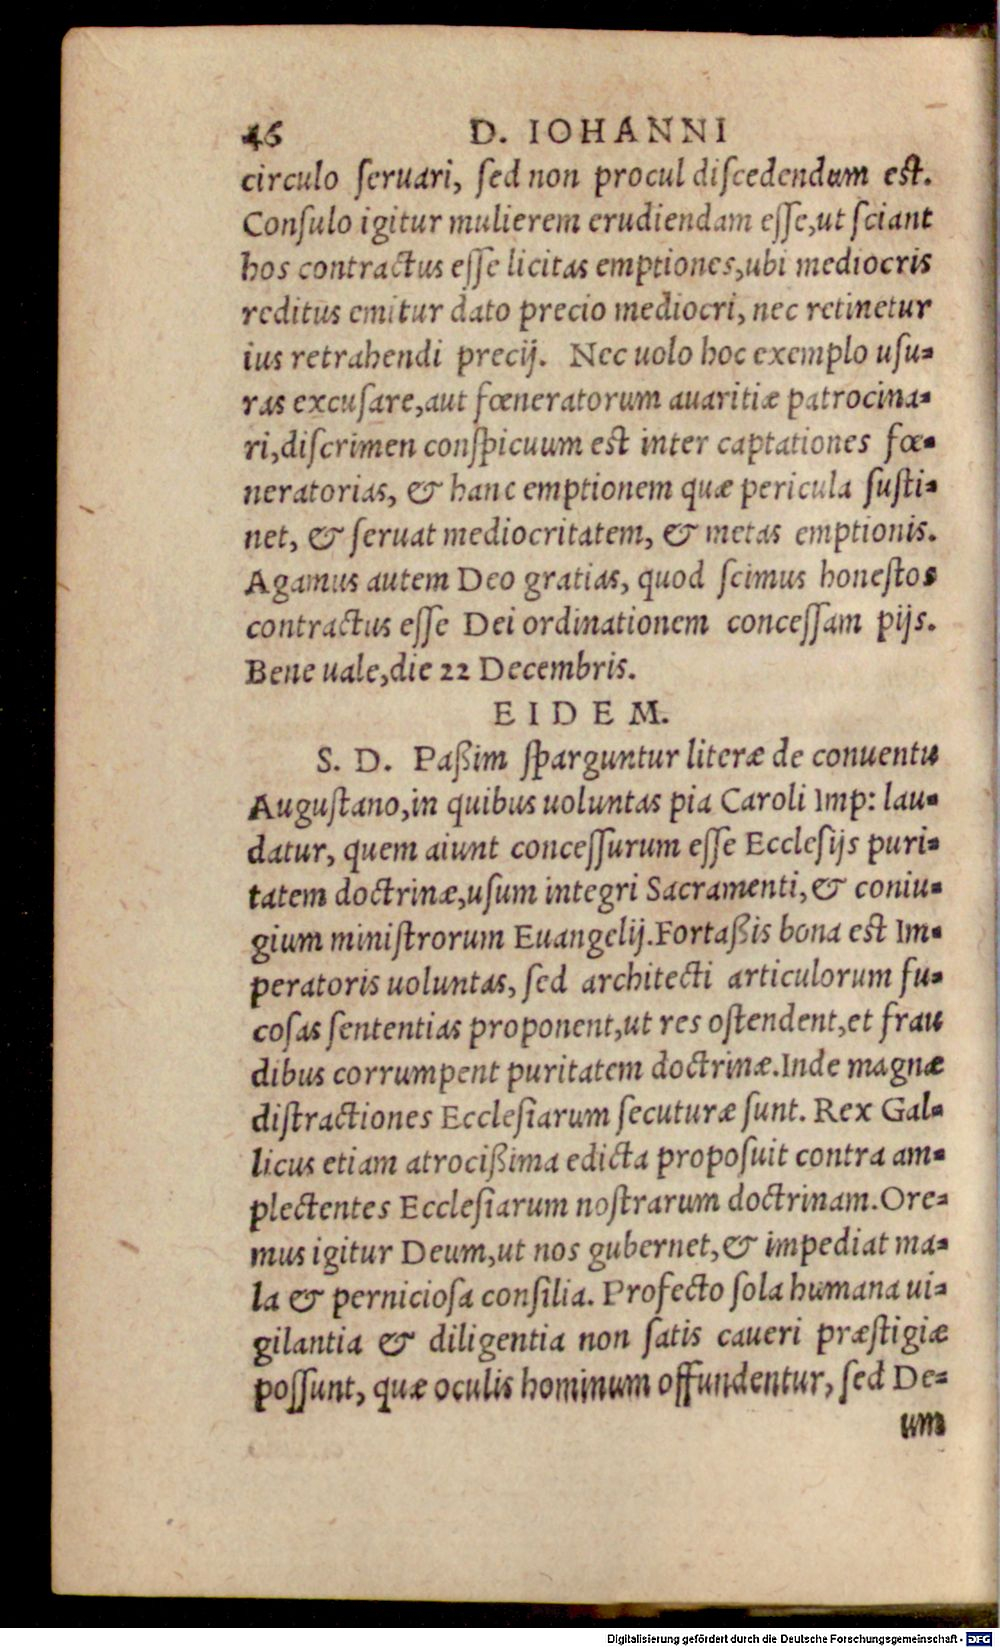 46 D. IOHANNI
circulo ſeruari, ſed non procul diſcedendum eſt.
Conſulo igitur mulierem erudiendam eſſe,ut ſciant
hos contractus eſſe licitas emptiones,ubi mediocris
reditus emitur dato precio mediocri, nec retinetur
ius retrahendi precij. Nec uolo hoc exemplo uſu-
ras excuſare,aut fœneratorum auaritiæ patrocina-
ri,diſcrimen conſpicuum est inter captationes fœ-
neratorias, & hanc emptionem quæ pericula ſuſti-
net, & ſeruat mediocritatem, & metas emptionis.
Agamus autem Deo gratias, quod ſcimus honeſtos
contractus eſſe Dei ordinationem conceſſam pijs.
Bene uale,die 22 Decembris.
EIDEM.
S. D. Paßim ſparguntur literæ de conuentu
Auguſtano,in quibus uoluntas pia Caroli Imp: lau-
datur, quem aiunt conceſſurum eſſe Eccleſijs puri-
tatem doctrinæ,uſum integri Sacramenti,& coniu-
gium miniſtrorum Euangelij.Fortaßis bona est Im-
peratoris uoluntas, ſed architecti articulorum fu-
coſas ſententias proponent,ut res oſtendent,et frau
dibus corrumpent puritatem doctrinæ.Inde magnæ
diſtractiones Eccleſiarum ſecuturæ ſunt. Rex Gal-
licus etiam atrocißima edicta propoſuit contra am-
plectentes Eccleſiarum noſtrarum doctrinam.Ore-
mus igitur Deum,ut nos gubernet,& impediat ma-
la & pernicioſa conſilia. Profecto ſola humana ui-
gilantia & diligentia non ſatis caueri præſtigiæ
poſſunt, quæ oculis hominum offundentur, ſed De-
um
Digitalisierung gefördert durch die Deutsche Forschungsgemeinschaft - DFG